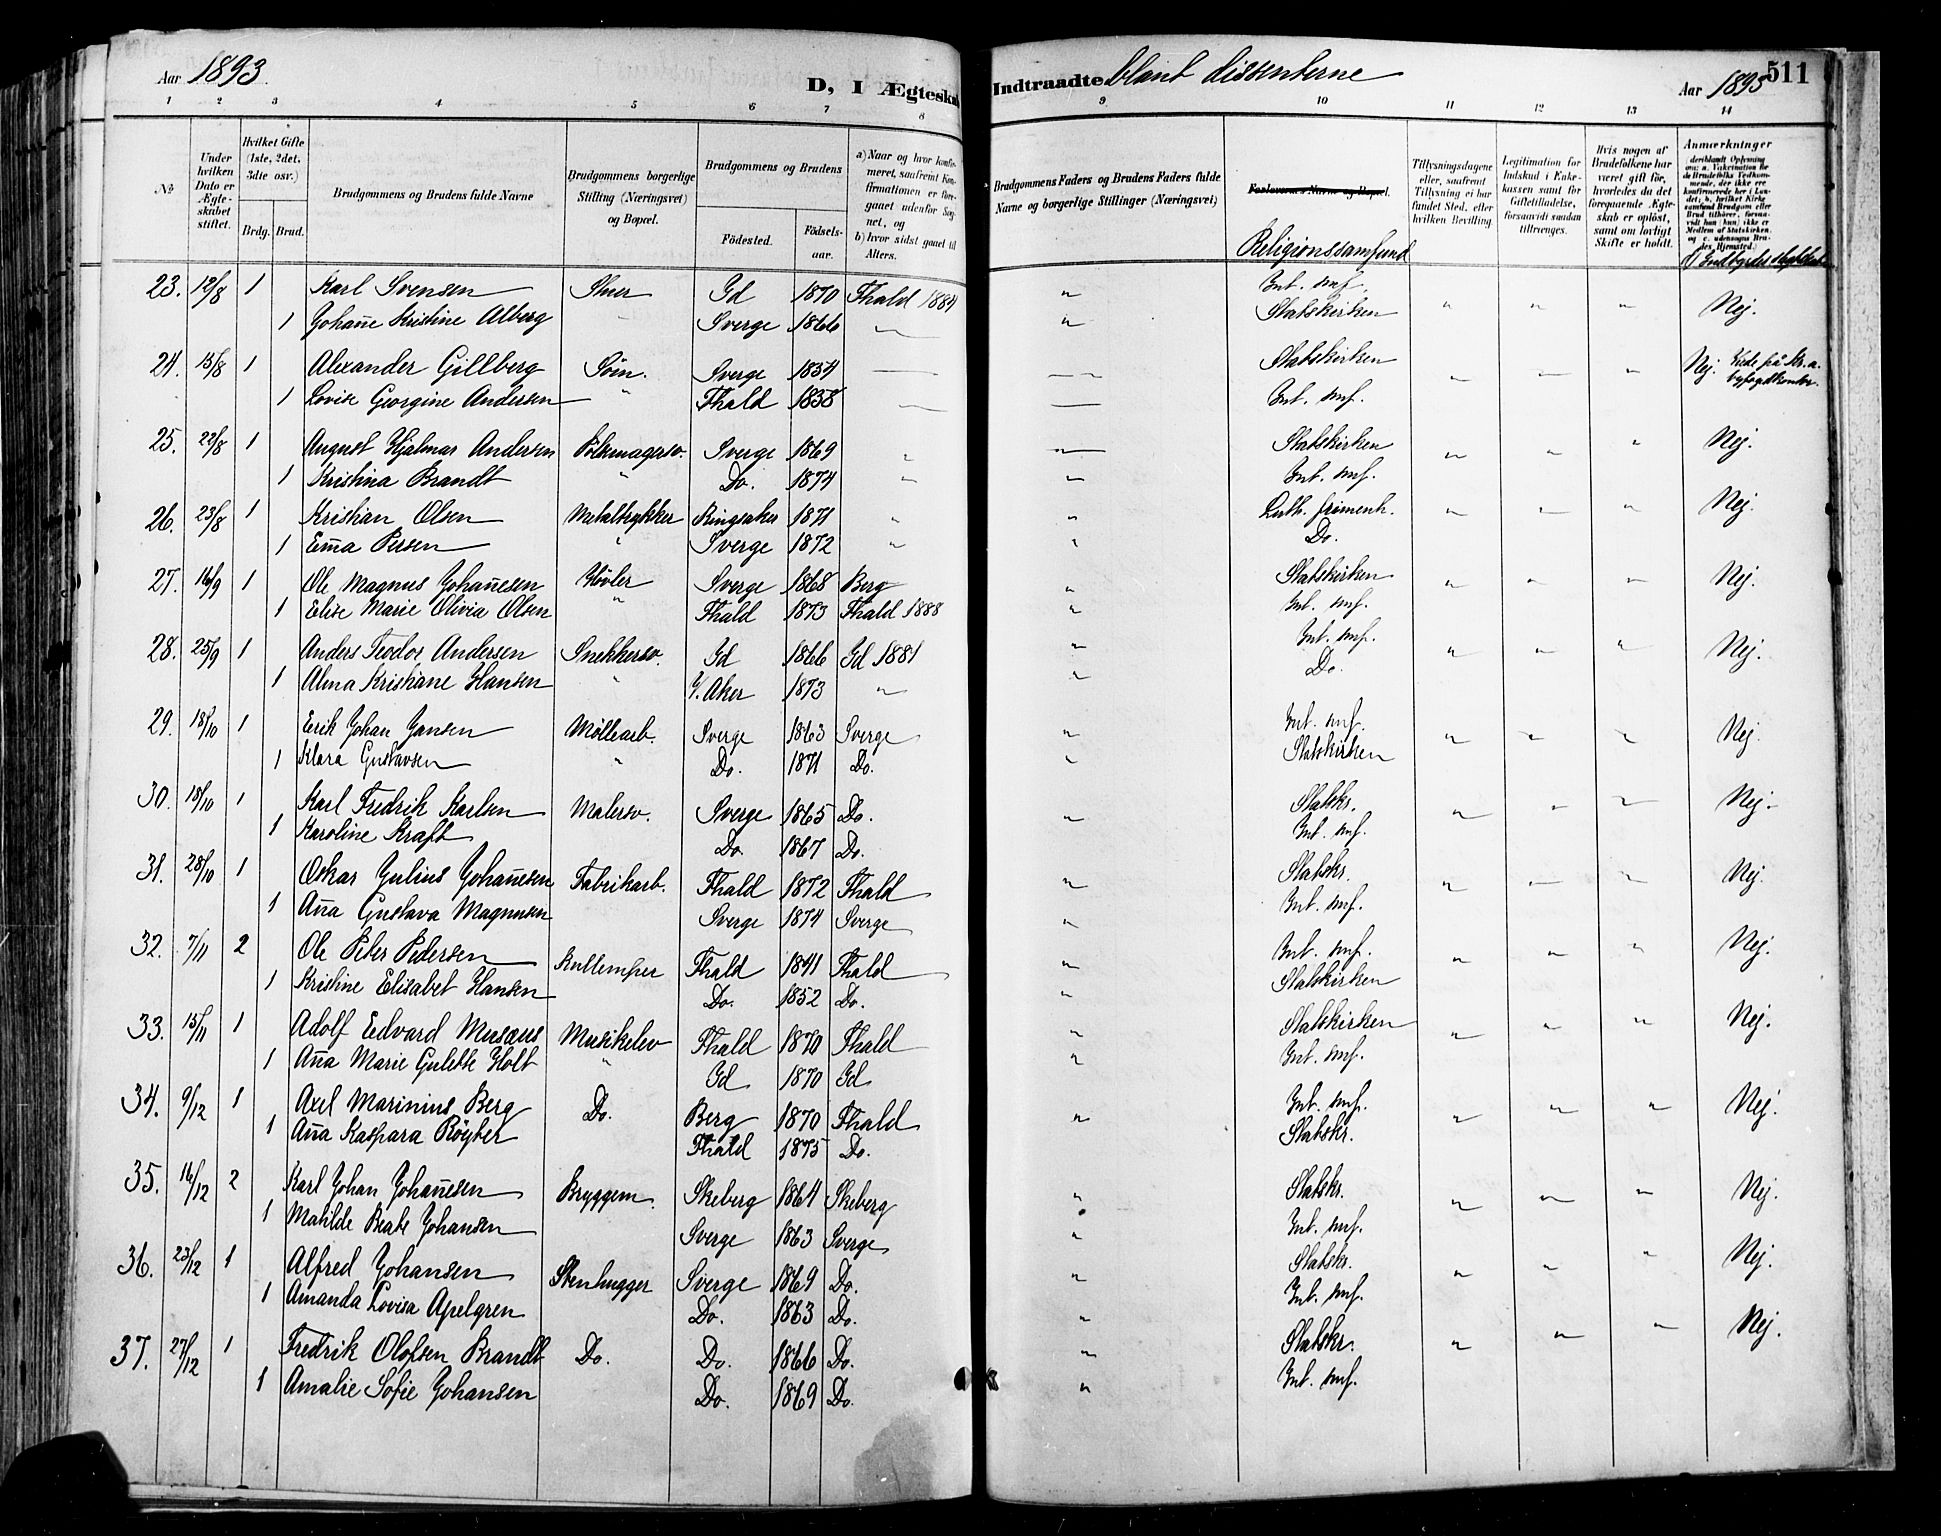 Aar 1893. D, I Ægteskab Indtraadte blant dissenterne Aar 1893 511
1 2 3 4 5 6 7 8 9 10 11 12 13 14
No.
Under hvilken Dato er Ægteskabet stiftet.
Hvilket Gifte (1ste, 2det, 3die osv.)
Brdg. Brud.
Brudgommens og Brudens fulde Navne
Brudgommens borgerlige Stilling (Næringsvei) og Bopæl.
Brudgommens og Brudens
Fødested. Fødselsaar.
a) Naar og hvor konfirmeret, saafremt Konfirmationen er foregaaet udenfor Sognet, og b) hvor sidst gaaet til Alters.
Brudgommens Faders og Brudens Faders fulde Navne og borgerlige Stillinger (Næringsvei)
Forlovernes Navne og Bopæl.
Religionssamfund
Tillysningsdagene eller, saafremt Tillysning ei har fundet Sted, efter hvilken Bevilling.
Legitimation for Indskud i Enkekassen samt for Giftetilladelse, forsaavidt saadan tiltrænges.
Hvis nogen af Brudefolkene har været gift før, hvorledes da det foregaaende Ægteskab er opløst, samt om lovligt Skifte er holdt.
Anmærkninger
23. 12/8 1 Karl Svensen Stuer Id 1870 Fhald 1884 " Int. smf. " " " Nej.
1 Johanne Kristine Alberg " Sverge 1866 " " Statskirken
24. 15/8 1 Alexander Gillberg Søm. Sverge 1834 Statskirken " " " Nej. Viede på Kr.a. byfogdkontor.
1 Lovise Georgine Andersen " Fhald 1838 Int. smf.
25. 22/8 1 August Hjalmar Andersen Pølsmagersv. Sverge 1869 " " Statskirken " " " Nej.
1 Kristina Brandt " Do. 1874 " " Int. smf.
26. 23/8 1 Kristian Olsen Metaltrykker Ringsaker 1871 " " Luth. frimenh. " " " Nej.
1 Emma Persen " Sverge 1872 " " Do.
27. 16/9 1 Ole Magnus Johannesen Høvler Sverge 1868 Berg " Statskirken " " " Nej.
1 Elise Marie Olivia Olsen " Fhald 1873 Fhald 1888 " Int. smf.
28. 25/9 1 Anders Teodor Andersen Snekkersv. Id 1866 Id 1881 " Int. smf. " " " Nej.
1 Alma Kristiane Hansen " V. Aker 1873 " " Do.
29. 18/10 1 Erik Johan Jansen Møllearb. Sverge 1863 Sverge " Int. smf. " " " Nej.
1 Klara Gustavsen " Do. 1871 Do. " Statskirken
30. 18/10 1 Karl Fredrik Karlsen Malersv. Sverge 1865 Do. " Statskr. " " " Nej.
1 Karoline Kraft Do. 1867 Do. Int. smf.
31. 28/10 1 Oskar Julius Johannesen Fabrikarb. Fhald 1872 Fhald " Statskr. " " " Nej.
1 Anna Gustava Magnusen Sverge 1874 Sverge " Int. smf.
32. 7/11 2 Ole Peter Pedersen Kullemper Fhald 1841 Fhald " Int. smf. " " " Nej.
1 Kristine Elisabet Hansen Do. 1852 Do. " Statskirken
33. 15/11 1 Adolf Edvard Musæus Musikelev Fhald 1870 Fhald " Statskirken " " " Nej.
1 Anna Marie Gulette Holt " Id 1870 Id " Int. smf.
34. 9/12 1 Axel Marinius Berg Do. Berg 1870 Fhald " Int. smf. " " " Nej.
1 Anna Kaspara Röyter Fhald 1875 Do. Statskr.
35. 16/12 2 Karl Johan Johannesen Bryggem. Skeberg 1864 Skeberg " Statskr. " " " Nej.
1 Matilde Beate Johansen Sverge 1863 Sverge " Int. smf.
36. 23/12 1 Alfred Johansen Stenhugger Sverge 1869 Do. " Statskr. " " " Nej.
1 Amanda Lovisa Apelgren Do. 1863 Do. " Int. smf.
37. 27/12 1 Fredrik Olofsen Brandt Do. Do. 1866 Do. " Statskr. " " " Nej.
1 Amalie Sofie Johansen Do. 1869 Do. " Int. smf.